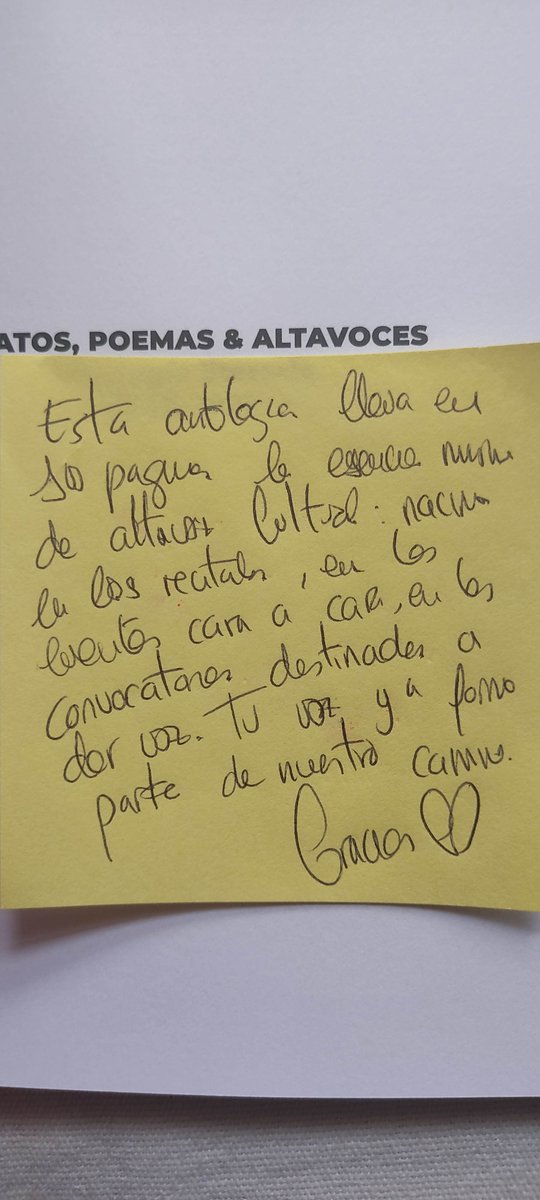 ATOS, POEMAS & ALTAVOCES
Esta antología lleva en
páginas la esencia misma
de altavoz Cultural: nacimos
en los recitales, en los
eventos cara a cara, en las
convocatorias destinadas a
dar voz. Tu voz, ya forma
parte de nuestro camino.
Gracias